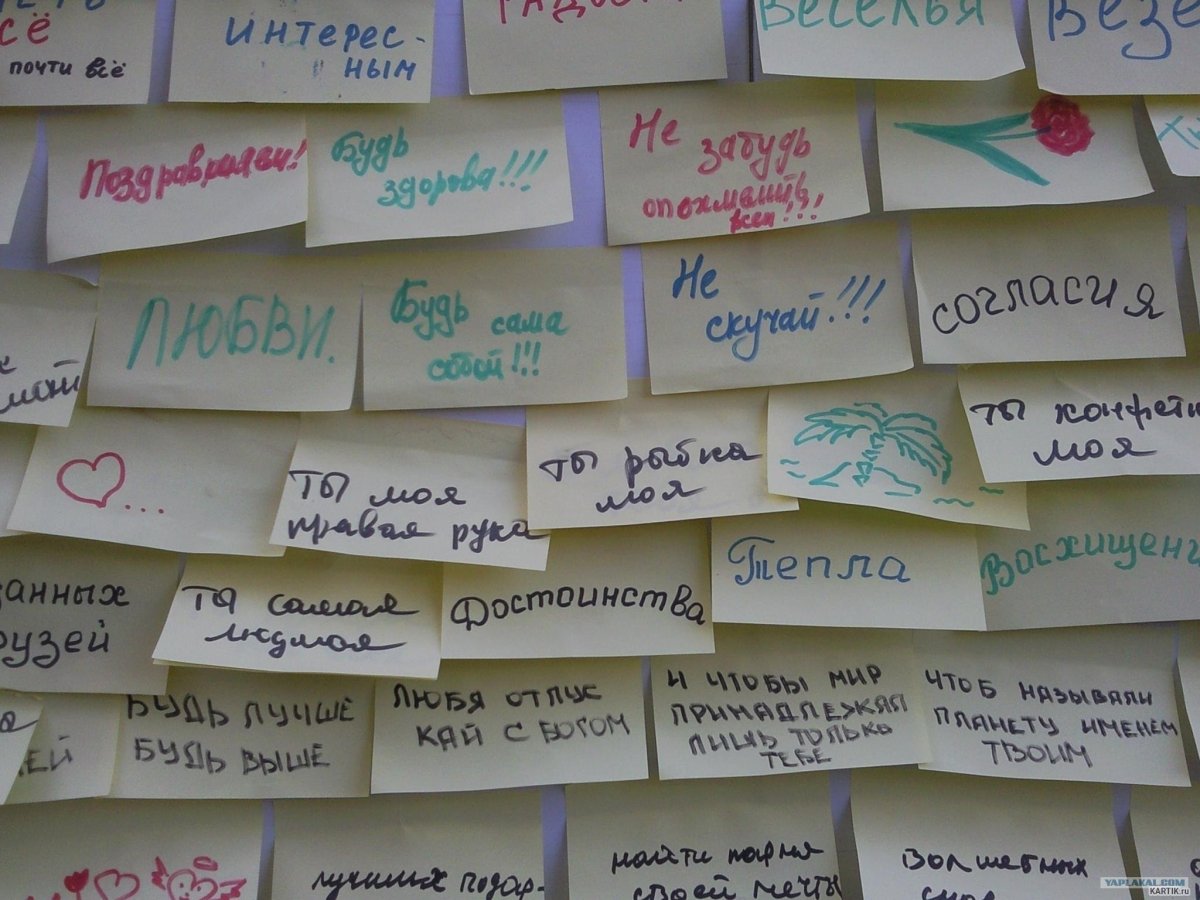 сё
почти всё
интерес-
ным
радости
веселья
везе
Поздравляем!
Будь
здорова!!!
Не
забудь
опохмелить
всех!!!
ЛЮБВИ.
Будь сама
собой!!!
Не
скучай!!!
согласия
...
ты моя
правая рука
ты рыбка
моя
ты конфетк
моя
занных
рузей
ты самая
людмая
Достоинства
Тепла
Восхищени
ЕЙ
БУДЬ ЛУЧШЕ
БУДЬ ВЫШЕ
ЛЮБЯ ОТПУС
КАЙ С БОГОМ
И ЧТОБЫ МИР
ПРИНАДЛЕЖАЛ
ЛИШЬ ТОЛЬКО
ТЕБЕ
ЧТОБ НАЗЫВАЛИ
ПЛАНЕТУ ИМЕНЕМ
ТВОИМ
лучших подар-
найти парня
своей мечты
волшебных
YAPLAKAL.COM
KARTIK.ru